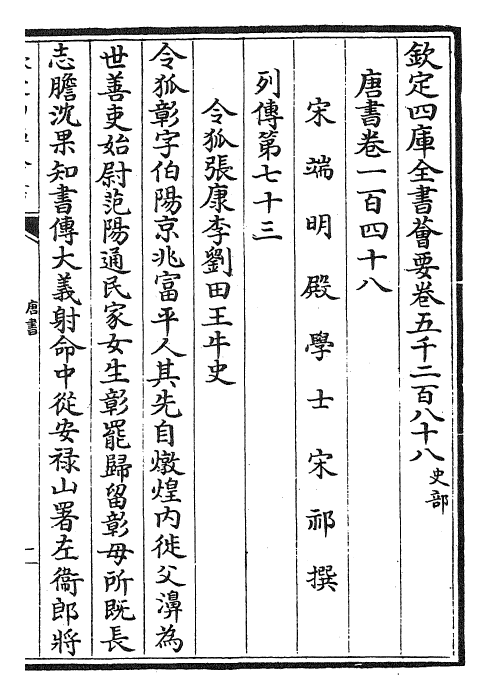 欽定四庫全書薈要卷五千二百八十八 史部
唐書卷一百四十八
宋端明殿學士宋祁撰
列傳第七十三
令狐張康李劉田王牛史
令狐彰字伯陽京兆富平人其先自燉煌内徙父濞為
世善吏始尉范陽通民家女生彰罷歸留彰母所既長
志膽沈果知書傳大義射命中從安禄山署左衞郎將
唐書